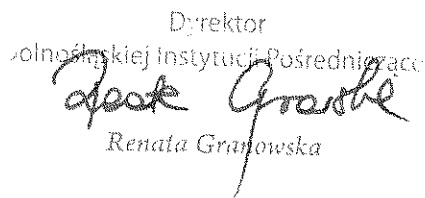 Dyrektor
olnośląskiej Instytucji Pośredniczące
Renata Granowska